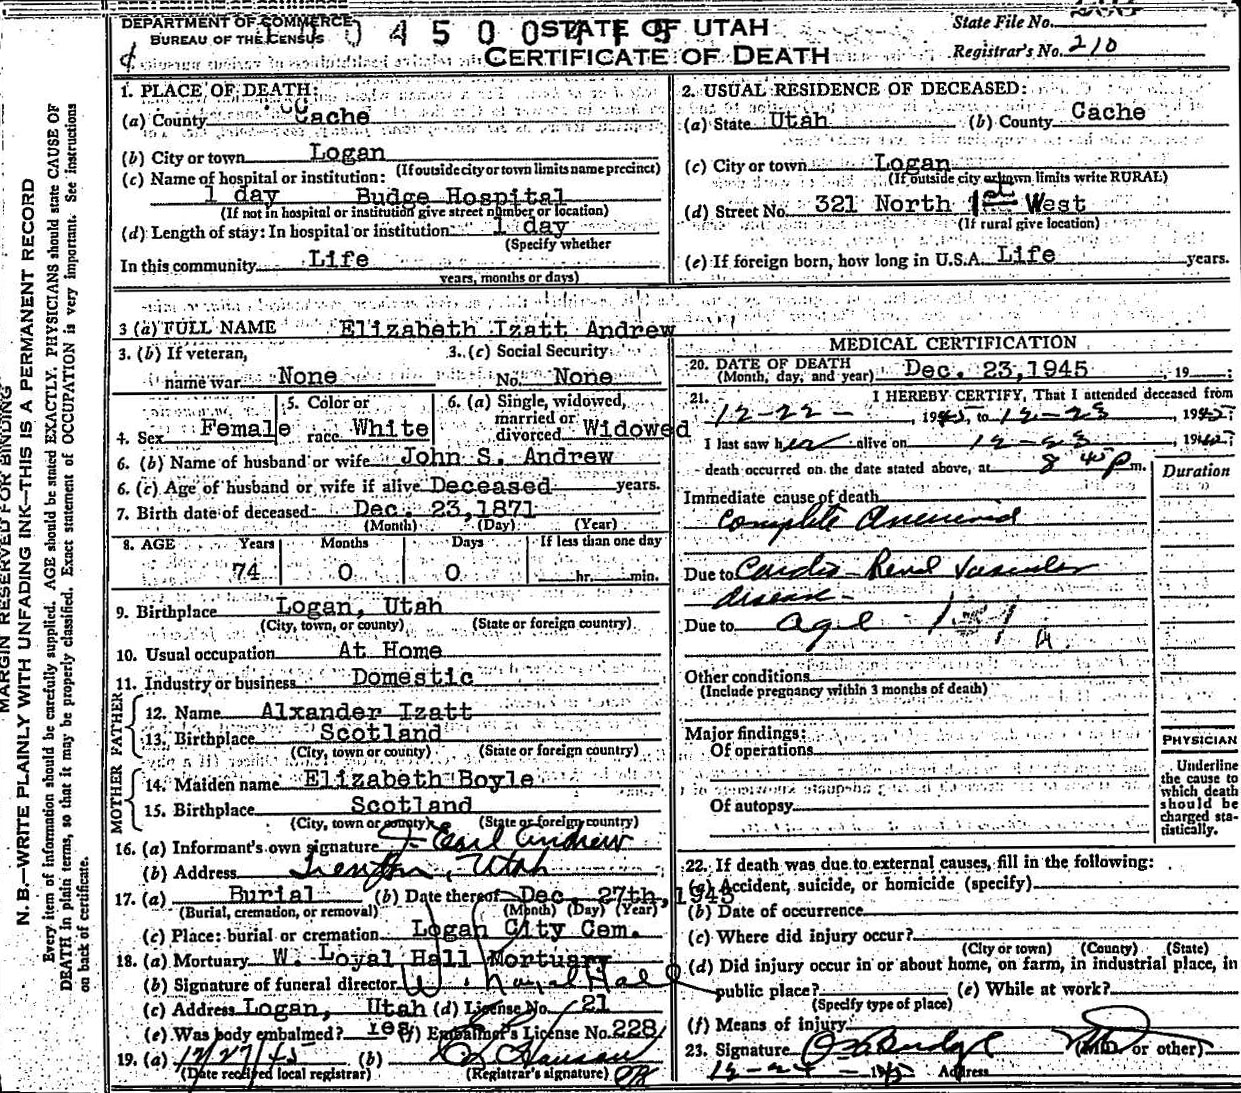 DEPARTMENT OF COMMERCE
BUREAU OF THE CENSUS
STATE OF UTAH
CERTIFICATE OF DEATH
State File No.
Registrar's No. 210
MARGIN RESERVED FOR BINDING
N. B.—WRITE PLAINLY WITH UNFADING INK—THIS IS A PERMANENT RECORD
Every item of information should be carefully supplied. AGE should be stated EXACTLY. PHYSICIANS should state CAUSE OF
DEATH in plain terms, so that it may be properly classified. Exact statement of OCCUPATION is very important. See instructions
on back of certificate.
1. PLACE OF DEATH:
(a) County Cache
(b) City or town Logan
(If outside city or town limits name precinct)
(c) Name of hospital or institution:
1 day Budge Hospital
(If not in hospital or institution give street number or location)
(d) Length of stay: In hospital or institution 1 day
(Specify whether
In this community Life
years, months or days)
2. USUAL RESIDENCE OF DECEASED:
(a) State Utah (b) County Cache
(c) City or town Logan
(If outside city or town limits write RURAL)
(d) Street No. 321 North 1st West
(If rural give location)
(e) If foreign born, how long in U.S.A. Life years.
3 (a) FULL NAME Elizabeth Izatt Andrew
3. (b) If veteran,
name war None
3. (c) Social Security
No. None
4. Sex Female
5. Color or
race White
6. (a) Single, widowed,
married or
divorced Widowed
6. (b) Name of husband or wife John S. Andrew
6. (c) Age of husband or wife if alive Deceased years.
7. Birth date of deceased Dec. 23,1871
(Month) (Day) (Year)
8. AGE Years Months Days If less than one day
74 0 0 hr. min.
9. Birthplace Logan, Utah
(City, town, or county) (State or foreign country)
10. Usual occupation At Home
11. Industry or business Domestic
FATHER
12. Name Alxander Izatt
13. Birthplace Scotland
(City, town or county) (State or foreign country)
MOTHER
14. Maiden name Elizabeth Boyle
15. Birthplace Scotland
(City, town or county) (State or foreign country)
16. (a) Informant's own signature J. Earl Andrew
(b) Address Trenton, Utah
17. (a) Burial (b) Date thereof Dec. 27th, 1945
(Burial, cremation, or removal) (Month) (Day) (Year)
(c) Place: burial or cremation Logan City Cem.
18. (a) Mortuary W. Loyal Hall Mortuary
(b) Signature of funeral director W. Loyal Hall
(c) Address Logan, Utah (d) License No. 21
(e) Was body embalmed? Yes (f) Embalmer's License No. 228
19. (a) 12/27/45 (b)
(Date received local registrar) (Registrar's signature)
MEDICAL CERTIFICATION
20. DATE OF DEATH
(Month, day, and year) Dec. 23,1945, 19
21. I HEREBY CERTIFY, That I attended deceased from
12-22-, 1945, to 12-23, 1945
I last saw her alive on 12-23, 1945
death occurred on the date stated above, at 8 45 P m.
Duration
Immediate cause of death
Complete
Due to Cardio-Renal Vascular
disease-
Due to age-
Other conditions
(Include pregnancy within 3 months of death)
Major findings:
Of operations
Of autopsy
PHYSICIAN
Underline
the cause to
which death
should be
charged sta-
tistically.
22. If death was due to external causes, fill in the following:
(a) Accident, suicide, or homicide (specify)
(b) Date of occurrence
(c) Where did injury occur?
(City or town) (County) (State)
(d) Did injury occur in or about home, on farm, in industrial place, in
public place? (e) While at work?
(Specify type of place)
(f) Means of injury
23. Signature Budge (M.D. or other)
Address